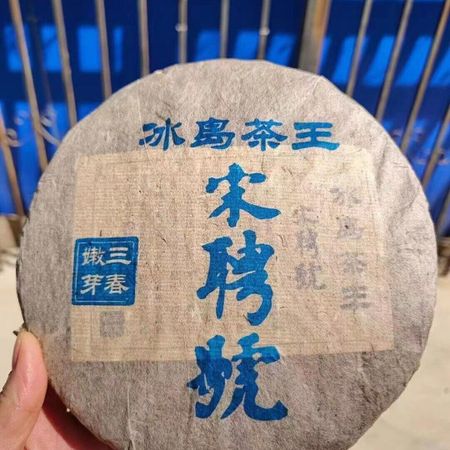 冰岛茶王
宋聘號
三春
嫩芽
冰岛茶王
宋聘號